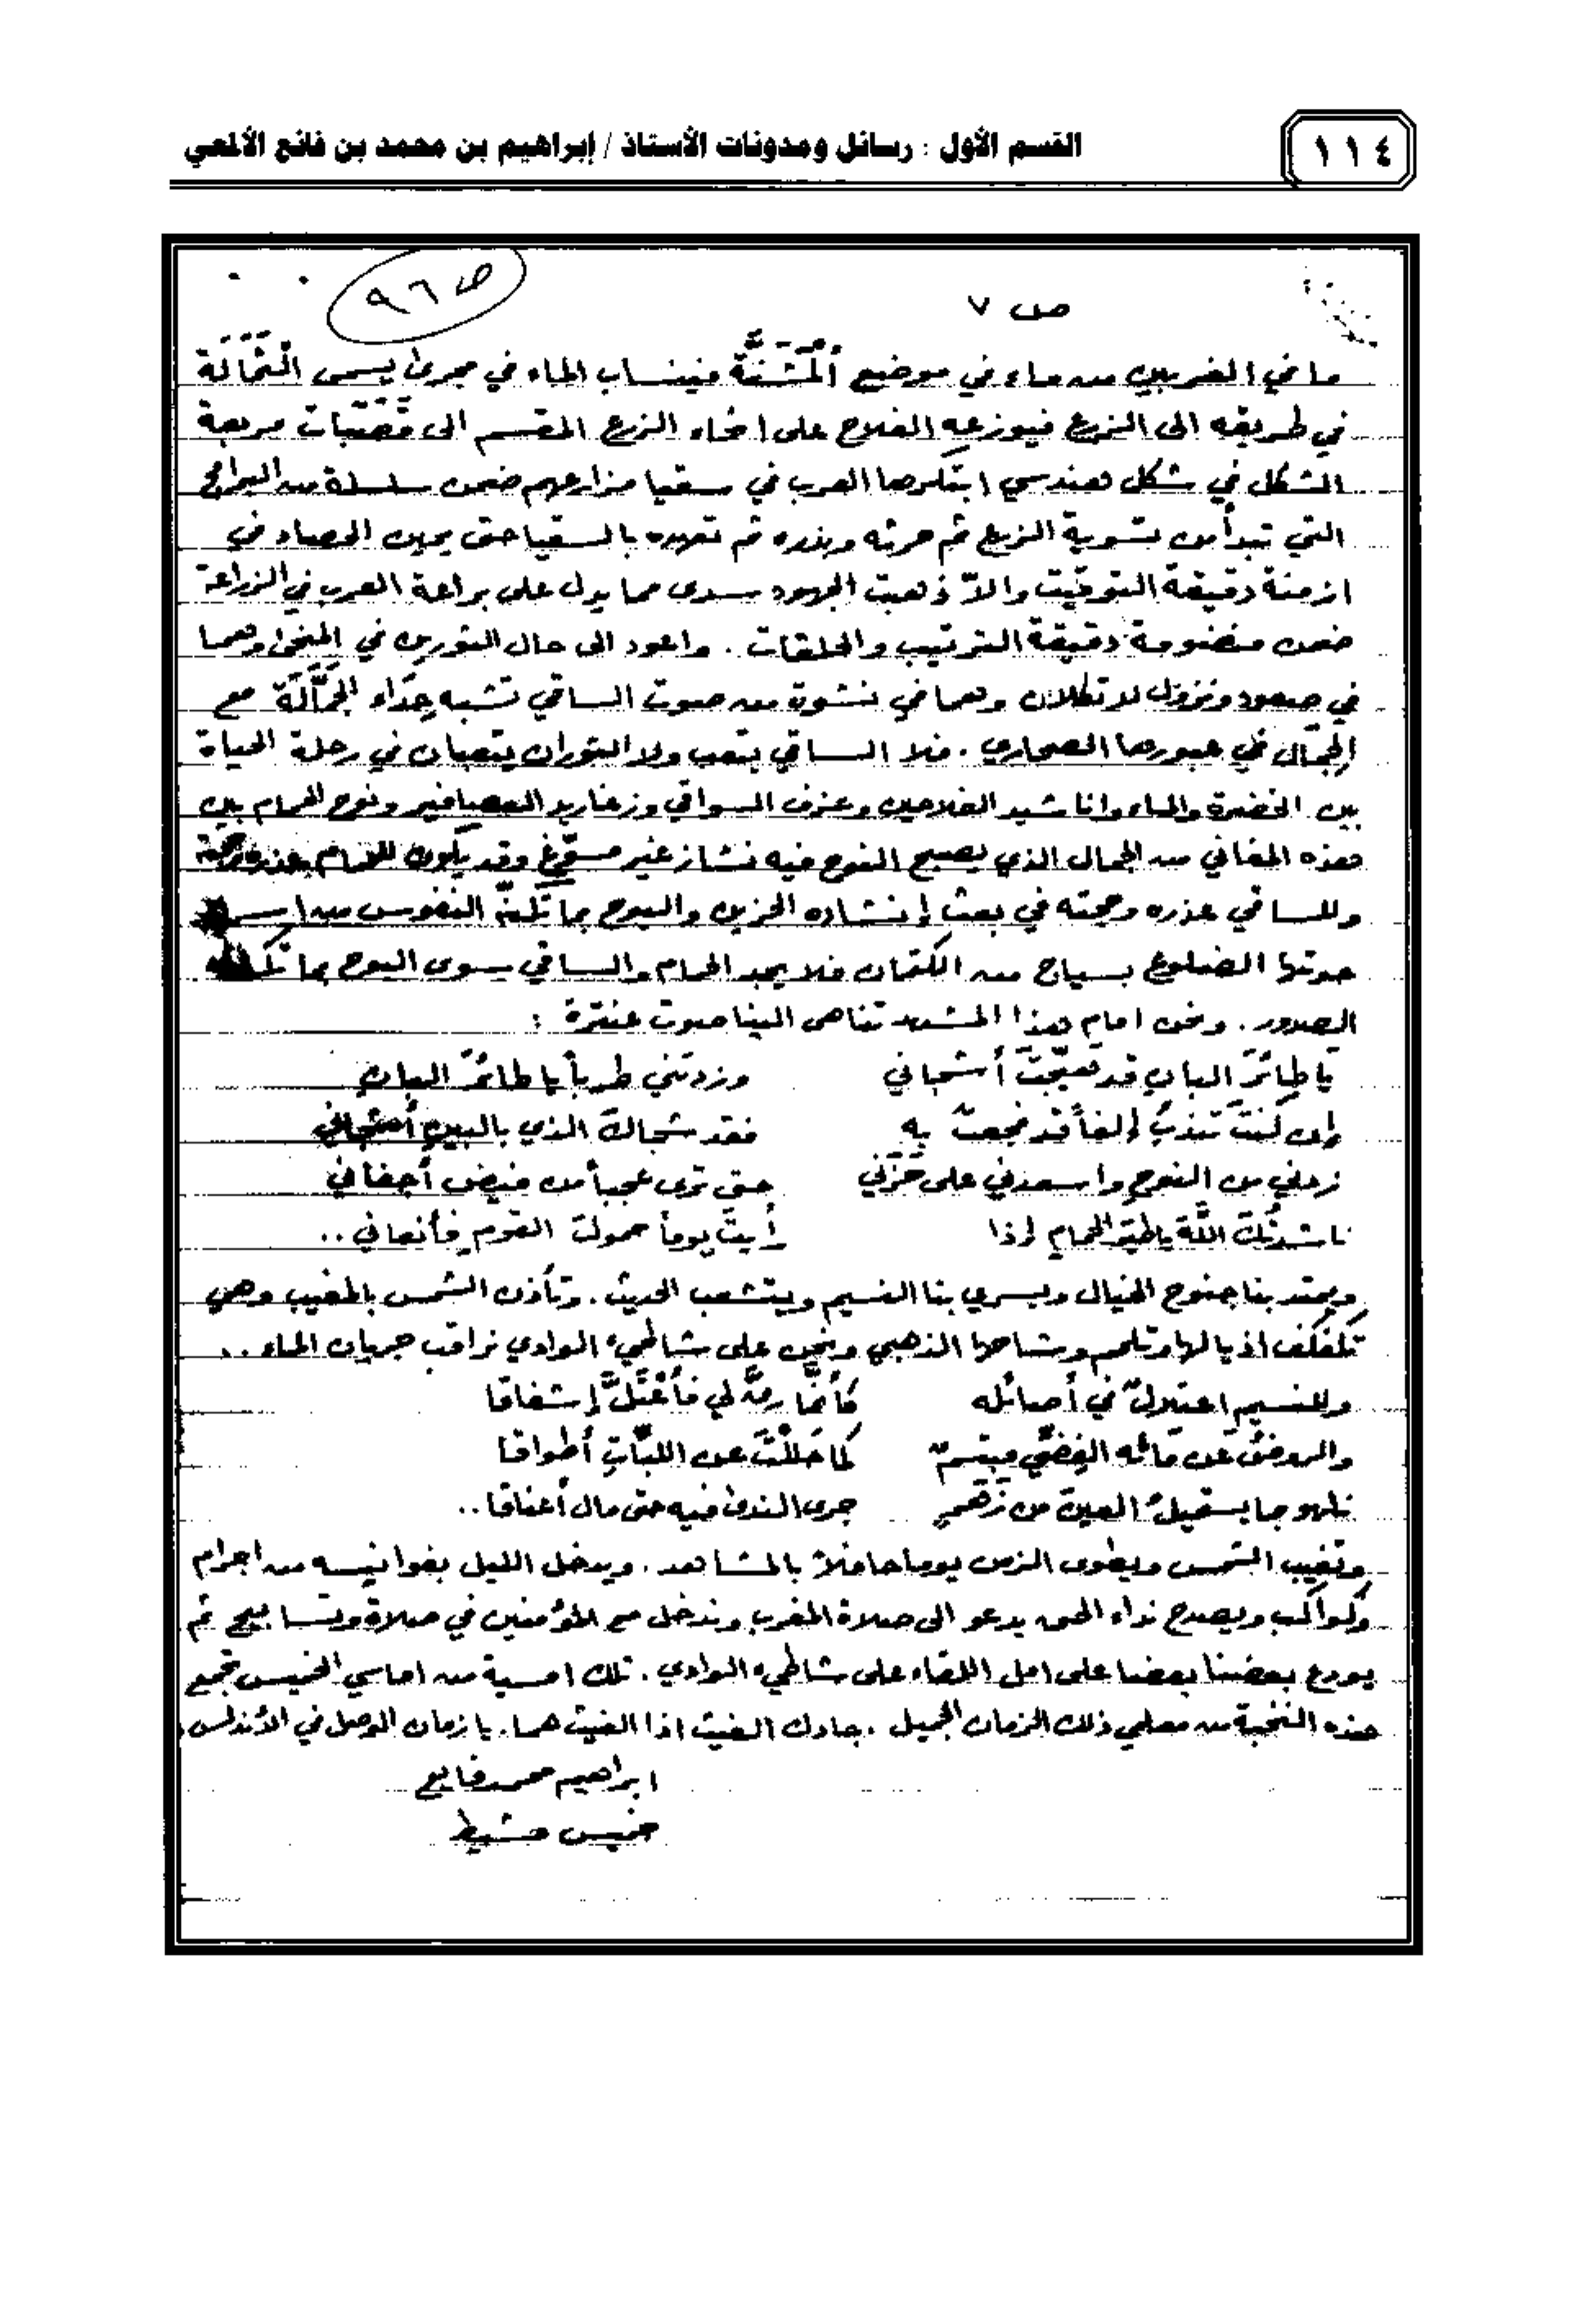 ١١٤
القسم الأول : رسائل ومدونات الأستاذ / إبراهيم بن محمد بن فائع الألمعي
ص ٩٦
ص ٧
ما في الغربين من ماء في موضع المشنة فينساب الماء في مجرى يسمى
في طريقه الى الزرع فيوزعه الفلاح على انحاء الزرع المقسم الى قصبات مربعة
الشكل في شكل هندسي ابتكرها العرب في سقيا مزارعهم ضمن سلسلة من البرامج
التي تبدأ من تسوية الزرع ثم حرثه وبذره ثم تعهده بالسقيا حتى يحين الحصاد في
ازمنة دقيقة التوقيت والاّ ذهبت الجهود سدى مما يدل على براعة العرب في الزراعة
ضمن منضومة دقيقة الترتيب والحلقات . واعود الى حال الثورين في المنحى وهما
في صعود ونزول لا تكلان وهما في نشوة من صوت الساقي تشبه حداء الجمَّالَة مع
الجمال في عبورها الصحاري . فلا الساقي يتعب ولا الثوران يتعبان في رحلة الحياة
بين الخضرة والماء وانا شيد الفلاحين وعزف السواقي وزغاريد العصافير ونوح الحمام بين
هذه المغاني من الجمال الذي يصبح النوح فيه نشاز غير مسوّغ وقد يكون للحمام عذره
وللساقي عذره وحجته في بعث إنشاده الحزين والبوح بما تكنّه النفوس من
حوتها الضلوع بسياج من الكتمان فلا يجد الحمام والساقي سوى البوح بما
الصدور . ونحن امام هذا المشهد تناهى الينا صوت عنترة :
يا طائرَ البانِ قد هيَّجتَ أشجاني وزدتني طرباً يا طائرَ البانِ
إن كنتَ تندبُ إلفاً قد فجعتَ به فقد شجاكَ الذي بالبينِ أشجاني
زدني من النوحِ واسعدني على حَزَني حتى ترى عجباً من فيضِ أجفاني
ناشدتُكَ اللَّهَ يا طيرَ الحمامِ إذا رأيتَ يوماً حمولَ القومِ فأنعاني ..
ويمتد بنا جنوح الخيال ويسري بنا النسيم ويتشعب الحديث . وتأذن الشمس بالمغيب وهي
تكفكف اذيالها وتلملم وشاحها الذهبي ونحن على شاطيء الوادي نراقب جريان الماء ..
وللنسيمِ اعتلالٌ في أصائله كأنَّما رقَّ لي فأعْتَلَّ إشفاقا
والروضُ عن مائه الفضيِّ مبتسمٌ كما حَلَلْتَ عن اللبَّاتِ أطواقا
نلهو بما يستميلُ العينَ من زهَرٍ جرى الندى فيه حتى مال أعناقا ..
وتغيب الشمس ويطوى الزمن يوما حافلاً بالمشاهد . ويدخل الليل بفوانيسه من اجرام
وكواكب ويصدح نداء الحق يدعو الى صلاة المغرب وندخل مع المؤمنين في صلاة وتسابيح ثم
يودع بعضنا بعضا على امل اللقاء على شاطيء الوادي . تلك امسية من اماسي الخميس تجمع
هذه النخبة من معلمي ذلك الزمان الجميل . جادك الغيث اذا الغيث هما . يا زمان الوصل في الأندلس
ابراهيم محمد فايع
خميس مشيط